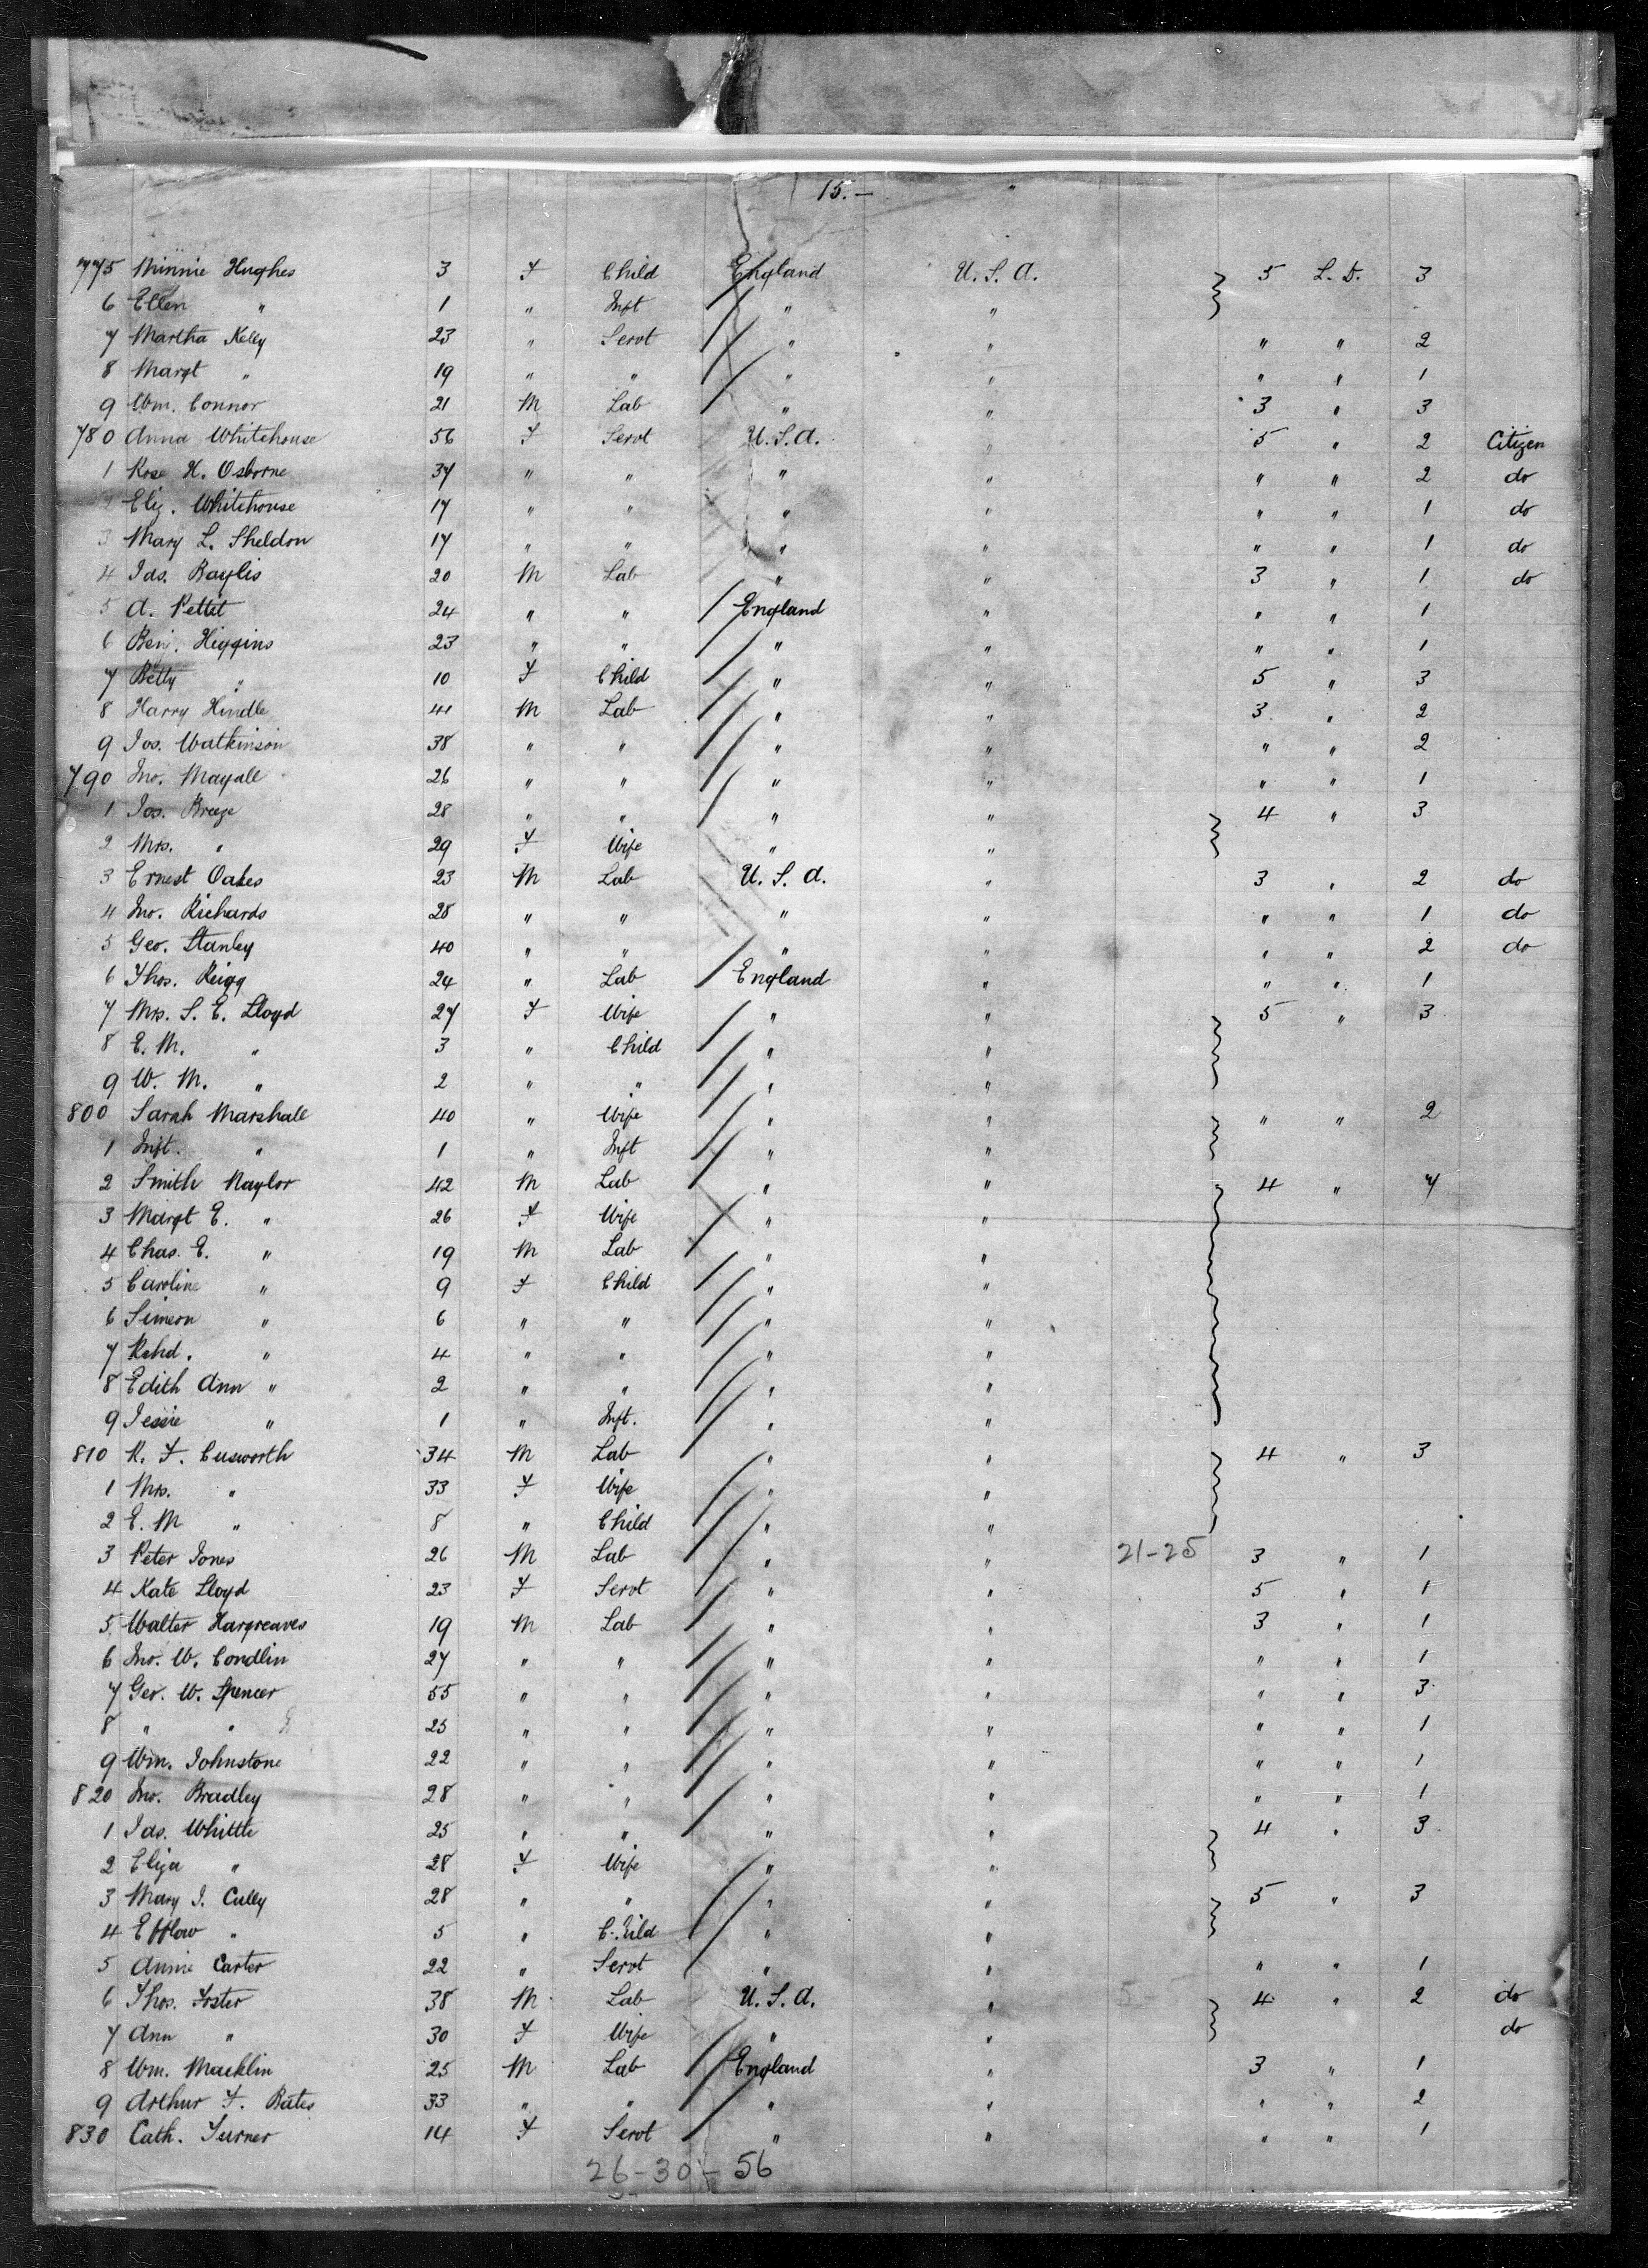 15.— "
775 Minnie Hughes 3 F Child England U.S.A. 5 L.D. 3
6 Ellen " 1 " Inft " "
7 Martha Kelly 23 " Servt " " " " 2
8 Margt " 19 " " " " " " 1
9 Wm. Connor 21 M Lab " " 3 " 3
780 Anna Whitehouse 56 F Servt U.S.A. " 5 " 2 Citizen
1 Rose H. Osborne 37 " " " " " " 2 do
2 Eliz. Whitehouse 17 " " " " " " 1 do
3 Mary L. Sheldon 17 " " " " " " 1 do
4 Jas. Baylis 20 M Lab " " 3 " 1 do
5 A. Pettet 24 " " England " " " 1
6 Benj. Higgins 23 " " " " " " 1
7 Betty " 10 F Child " " 5 " 3
8 Harry Hindle 41 M Lab " " 3 " 2
9 Jos. Watkinson 38 " " " " " " 2
790 Jno. Mayall 26 " " " " " " 1
1 Jos. Breeze 28 " " " " 4 " 3
2 Mrs. " 29 F Wife " "
3 Ernest Oakes 23 M Lab U.S.A. " 3 " 2 do
4 Jno. Richards 28 " " " " " " 1 do
5 Geo. Stanley 40 " " " " " " 2 do
6 Thos. Reigg 24 " Lab England " " " 1
7 Mrs. S. E. Lloyd 27 F Wife " " 5 " 3
8 E. M. " 3 " Child " "
9 W. M. " 2 " " " "
800 Sarah Marshall 40 " Wife " " " " 2
1 Inft. " 1 " Inft " "
2 Smith Naylor 42 M Lab " " 4 " 7
3 Margt E. " 26 F Wife " "
4 Chas. E. " 19 M Lab " "
5 Caroline " 9 F Child " "
6 Simeon " 6 " " " "
7 Rchd. " 4 " " " "
8 Edith Ann " 2 " " " "
9 Jessie " 1 " Inft. " "
810 R. F. Cusworth 34 M Lab " " 4 " 3
1 Mrs. " 33 F Wife " "
2 E. M " 8 " Child " "
3 Peter Jones 26 M Lab " " 21-25 3 " 1
4 Kate Lloyd 23 F Servt " " 5 " 1
5 Walter Hargreaves 19 M Lab " " 3 " 1
6 Jno. W. Condlin 27 " " " " " " 1
7 Geo. W. Spencer 55 " " " " " " 3
8 " " 25 " " " " " " 1
9 Wm. Johnstone 22 " " " " " " 1
820 Jno. Bradley 28 " " " " " " 1
1 Jas. Whittle 25 " " " " 4 " 3
2 Eliza " 28 F Wife " "
3 Mary J. Culley 28 " " " " 5 " 3
4 " 5 " Child " "
5 Annie Carter 22 " Servt " " " " 1
6 Thos. Foster 38 M Lab U.S.A. " 5- 4 " 2 do
7 Ann " 30 F Wife " " do
8 Wm. Macklin 25 M Lab England " 3 " 1
9 Arthur F. Bates 33 " " " " " " 2
830 Cath. Turner 14 F Servt " " " " 1
26-30-56